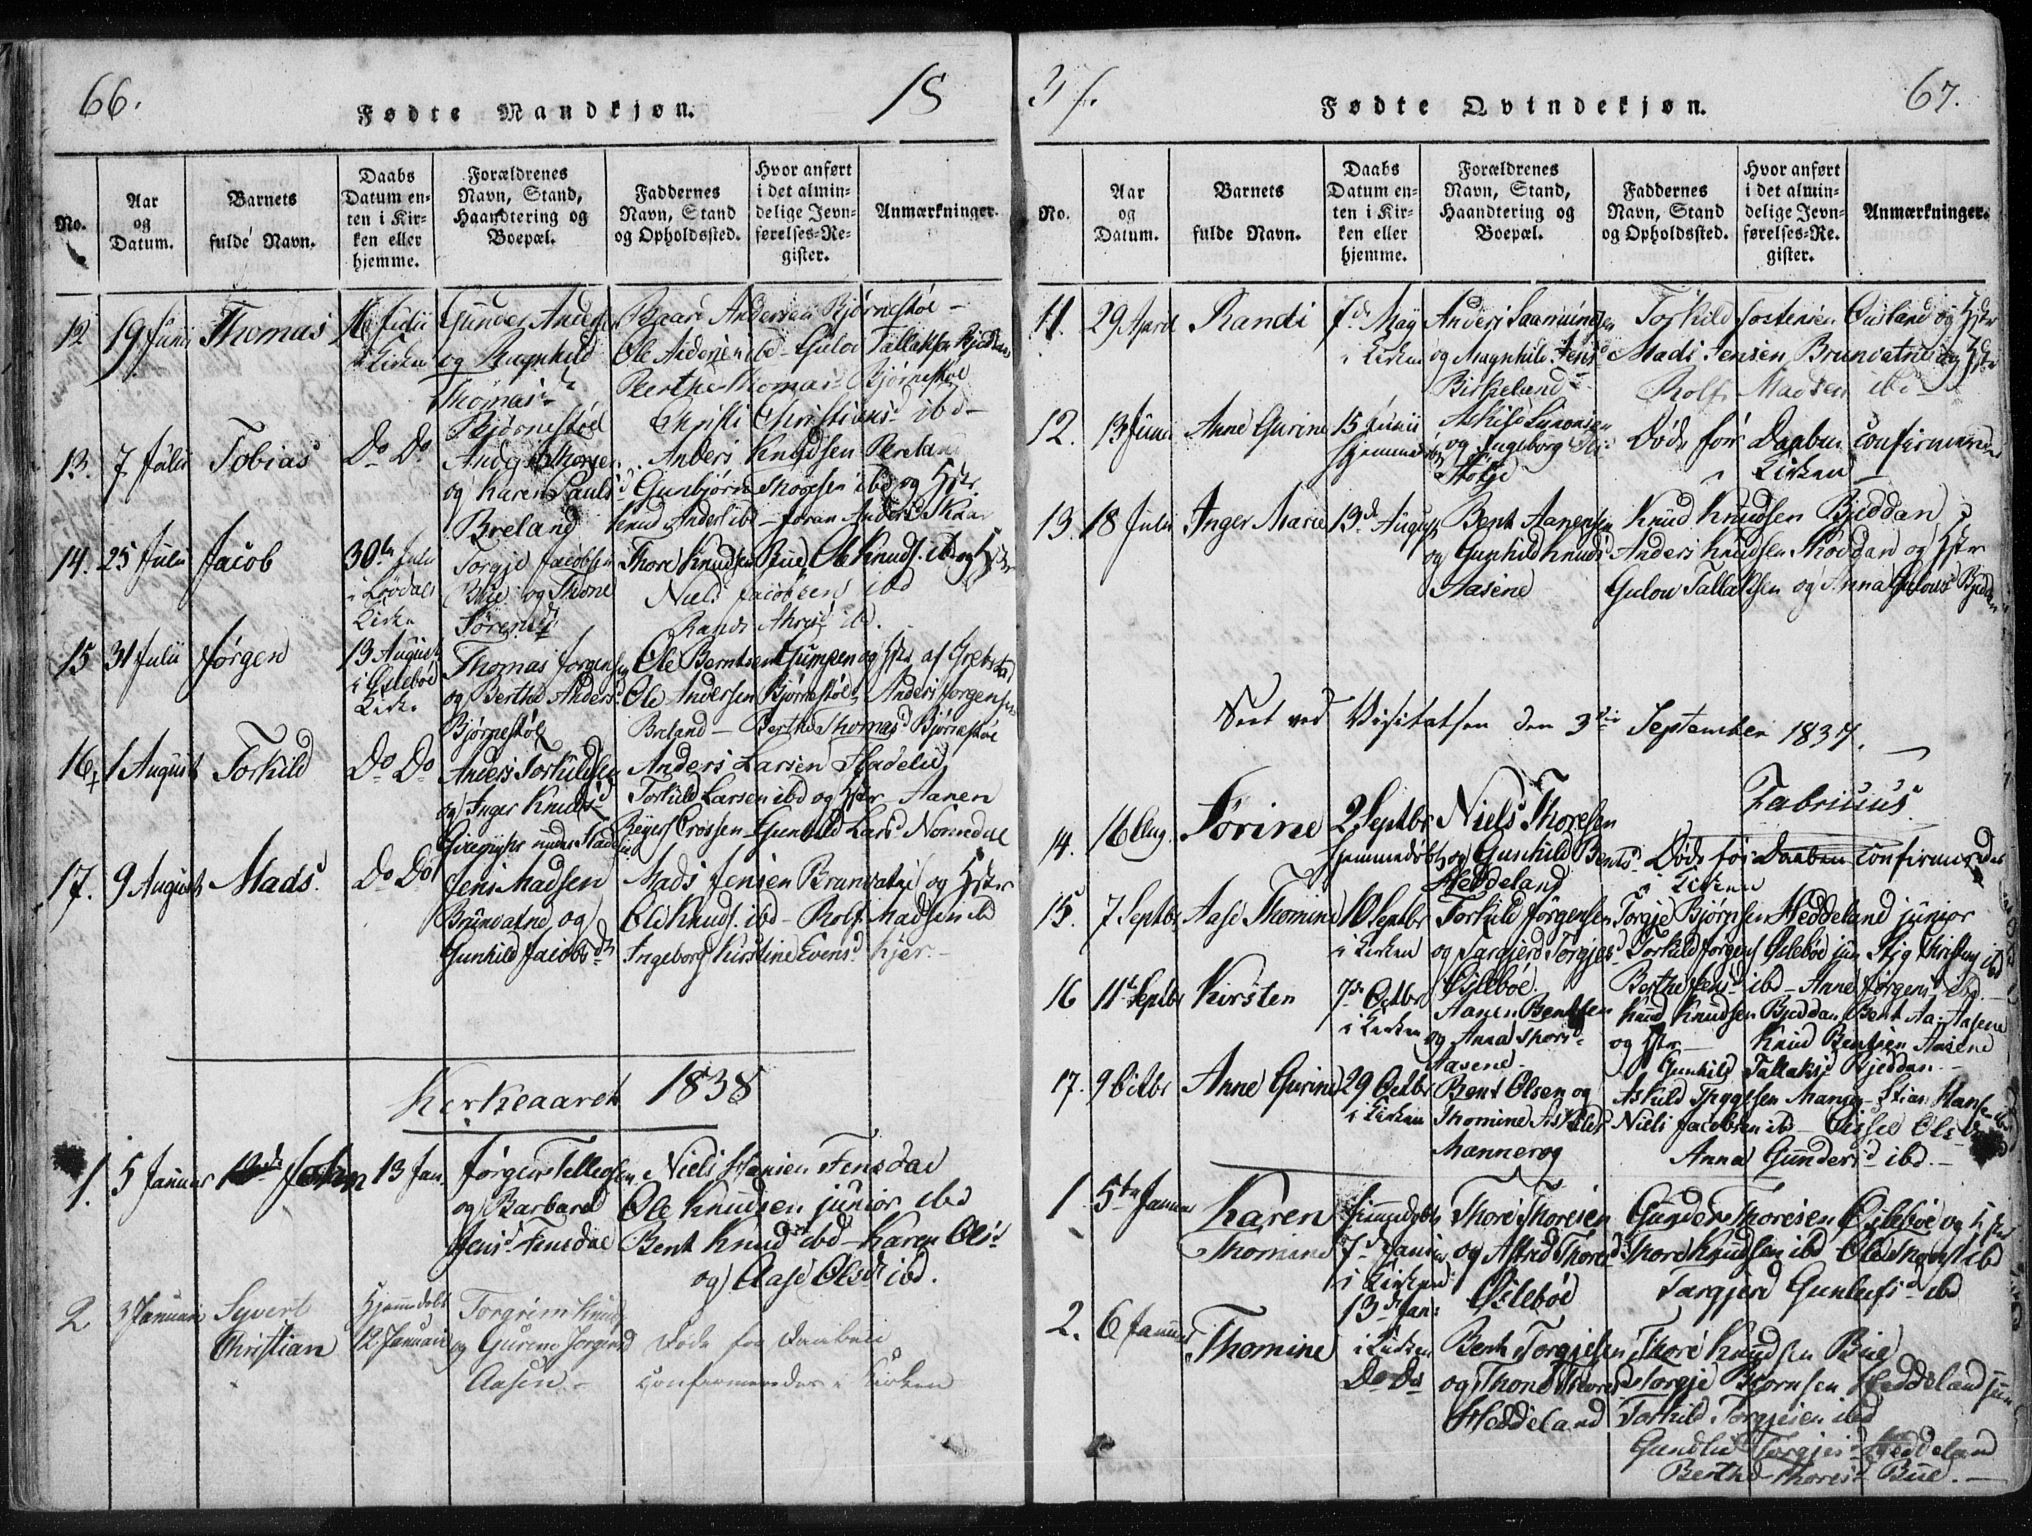 66.
Fødte Mandkjøn.
18
No.
Aar og Datum.
Barnets fulde Navn.
Daabs Datum enten i Kirken eller hjemme.
Forældrenes Navn, Stand, Haandtering og Boepæl.
Faddernes Navn, Stand og Opholdssted.
Hvor anført i det almindelige Jevnførelses-Register.
Anmærkninger.
12 19 Juni Thomas 16 Julii i Kirken
Gunder Andersen og Ragnhild Thomasd Bjørnestøl
Baard Andersen Bjørnestøl
Ole Andersen ibd - Gulov Tallaksen Bjeddan
Berthe Thomasd Bjørnestøl
Christi Christiansd ibd -
13. 7 Julii Tobias Do Do
Anders Thorsen og Karen Paulsd Breland
Anders Knudsen Breland
Gunbjørn Thorsen ibd og Hstr
Knud Anders ibd - Joran Andersd Skaar
14. 25 Julii Jacob 30te Julii i Løvdals Kirke
Torgje Jacobsen Bue og Thone Sørensd
Thore Knudsen Bue, Ole Knuds. ibd og Hstr
Niels Jacobsen ibd
Randi ibd.
15 31 Julii Jørgen 13 August i Øslebøe Kirke
Thomas Jørgensen og Berthe Andersd Bjørnestøl
Ole Berntsen Gumpen og Hstr af Grebstad
Ole Andersen Bjørnestøl, Anders Jørgensen
Breland - Berthe Thomasd Bjørnestøl
16 1 August Torkild Do Do
Anders Torkildsen og Inger Knudsd under Stadelie
Anders Larsen Stadelie,
Torkild Larsen ibd og Hstr Aanen
Gunhild Larsd Nomedal
17. 9 August Mads. Do Do
Jens Madsen Brunvatne og Gunhild Jacobsd
Mads Jensen Brunvatne og Hstr
Ole Knuds. ibd - Rolf Madsen ibd
Ingeborg Kirstine Evensd Kjær. -
Kirkeaaret 1838
1. 5 Januar John 13 Jan.
Jørgen Tellefsen og Barbara Jensd Finsdal
Niels Hansen Finsdal
Ole Knudsen junior ibd
Bent Knuds ibd - Karen Olsd
og Aase Olsd ibd.
2 3 Januari Syvert Christian Hjemmedøbt 12 Januari
Torgrim Knuds og Gurine Jørgensd Aasen. -
Døde før Daaben
confirmeredes i Kirken
37.
Fødte Qvindekjøn.
67.
No.
Aar og Datum.
Barnets fulde Navn.
Daabs Datum enten i Kirken eller hjemme.
Forældrenes Navn, Stand, Haandtering og Boepæl.
Faddernes Navn, Stand og Opholdssted.
Hvor anført i det almindelige Jevnførelses-Register.
Anmærkninger.
11. 29 April Randi 7de May i Kirken
Anders Saamundsen og Magnhild Jensd Birkeland
Torkild Jostensen Ousland og Hstr
Mads Jensen Brunvatne og Hstr
Rolf Madsen ibd
12. 13 Juni Anne Gurine 15 Junii Hjemmedøbt
og Ingeborg
Døde før Daaben confirmeredes i Kirken
13. 18 Julii Inger Marie 13de August
Bent Aanensen og Gunhild Knudsd Aasene
Knud Knudsen Bjeddan
Anders Knudsen Bjeddan og Hstr
Gulov Tallaksen og Anna Gulovsd Bjeddan
Seet ved Visitatsen den 3die September 1837.
Fabricius.
14. 16 Aug. Sørine 2 Septbr Hjemmedøbt
Niels Thoresen og Gunhild Bentsd Heddeland
Døde før Daaben confirmeredes i Kirken
15. 7 Septbr Aase Thomine 10 Septbr i Kirken
Torkild Jørgensen og Targjerd Torgjesd Øslebøe.
Torgje Bjørnsen Heddeland junior
Torkild Jørgens Øslebøe jun. Stig ibd
Berthe Jensd ibd - Anne Jørgensd ibd. -
16 11te Septbr Kirsten 7de Octbr i Kirken
Aanen Bentsen og Anna Thorsd Aasene
Knud Knudsen Bjeddan, Bent Aa. Aasene
og Hstr - Knud Bentsen Aasene
Gunhild Tallaksd Bjeddan. -
17. 9 Octbr Anne Gurine 29 Octbr i Kirken
Bent Olsen og Thomine Askilds Mannerog
Askild Thygesen Manner - Stian Hanse
Niels Jacobsen ibd -
Anna Gundersd ibd. -
1 5te Januar Karen Thomine Hjemmedøbt 7de Januar i Kirken
Thore Thoresen og Astrid Thoresd Øslebøe
Gunder Thoresen Øslebøe og Hstr
Thore Knudsen ibd Ole Thoress ibd
Targjerd Gunleifsd ibd
2. 6 Januar Thomine 13de Jan: i Kirken Do Do
Bent Torgjesen og Thone Thoresd Heddeland
Thore Knudsen Bue
Torgje Bjørnsen Heddeland jun
Torkild Torgjesen ibd
Torgjesd Heddeland
Berthe Thoresd Bue. -